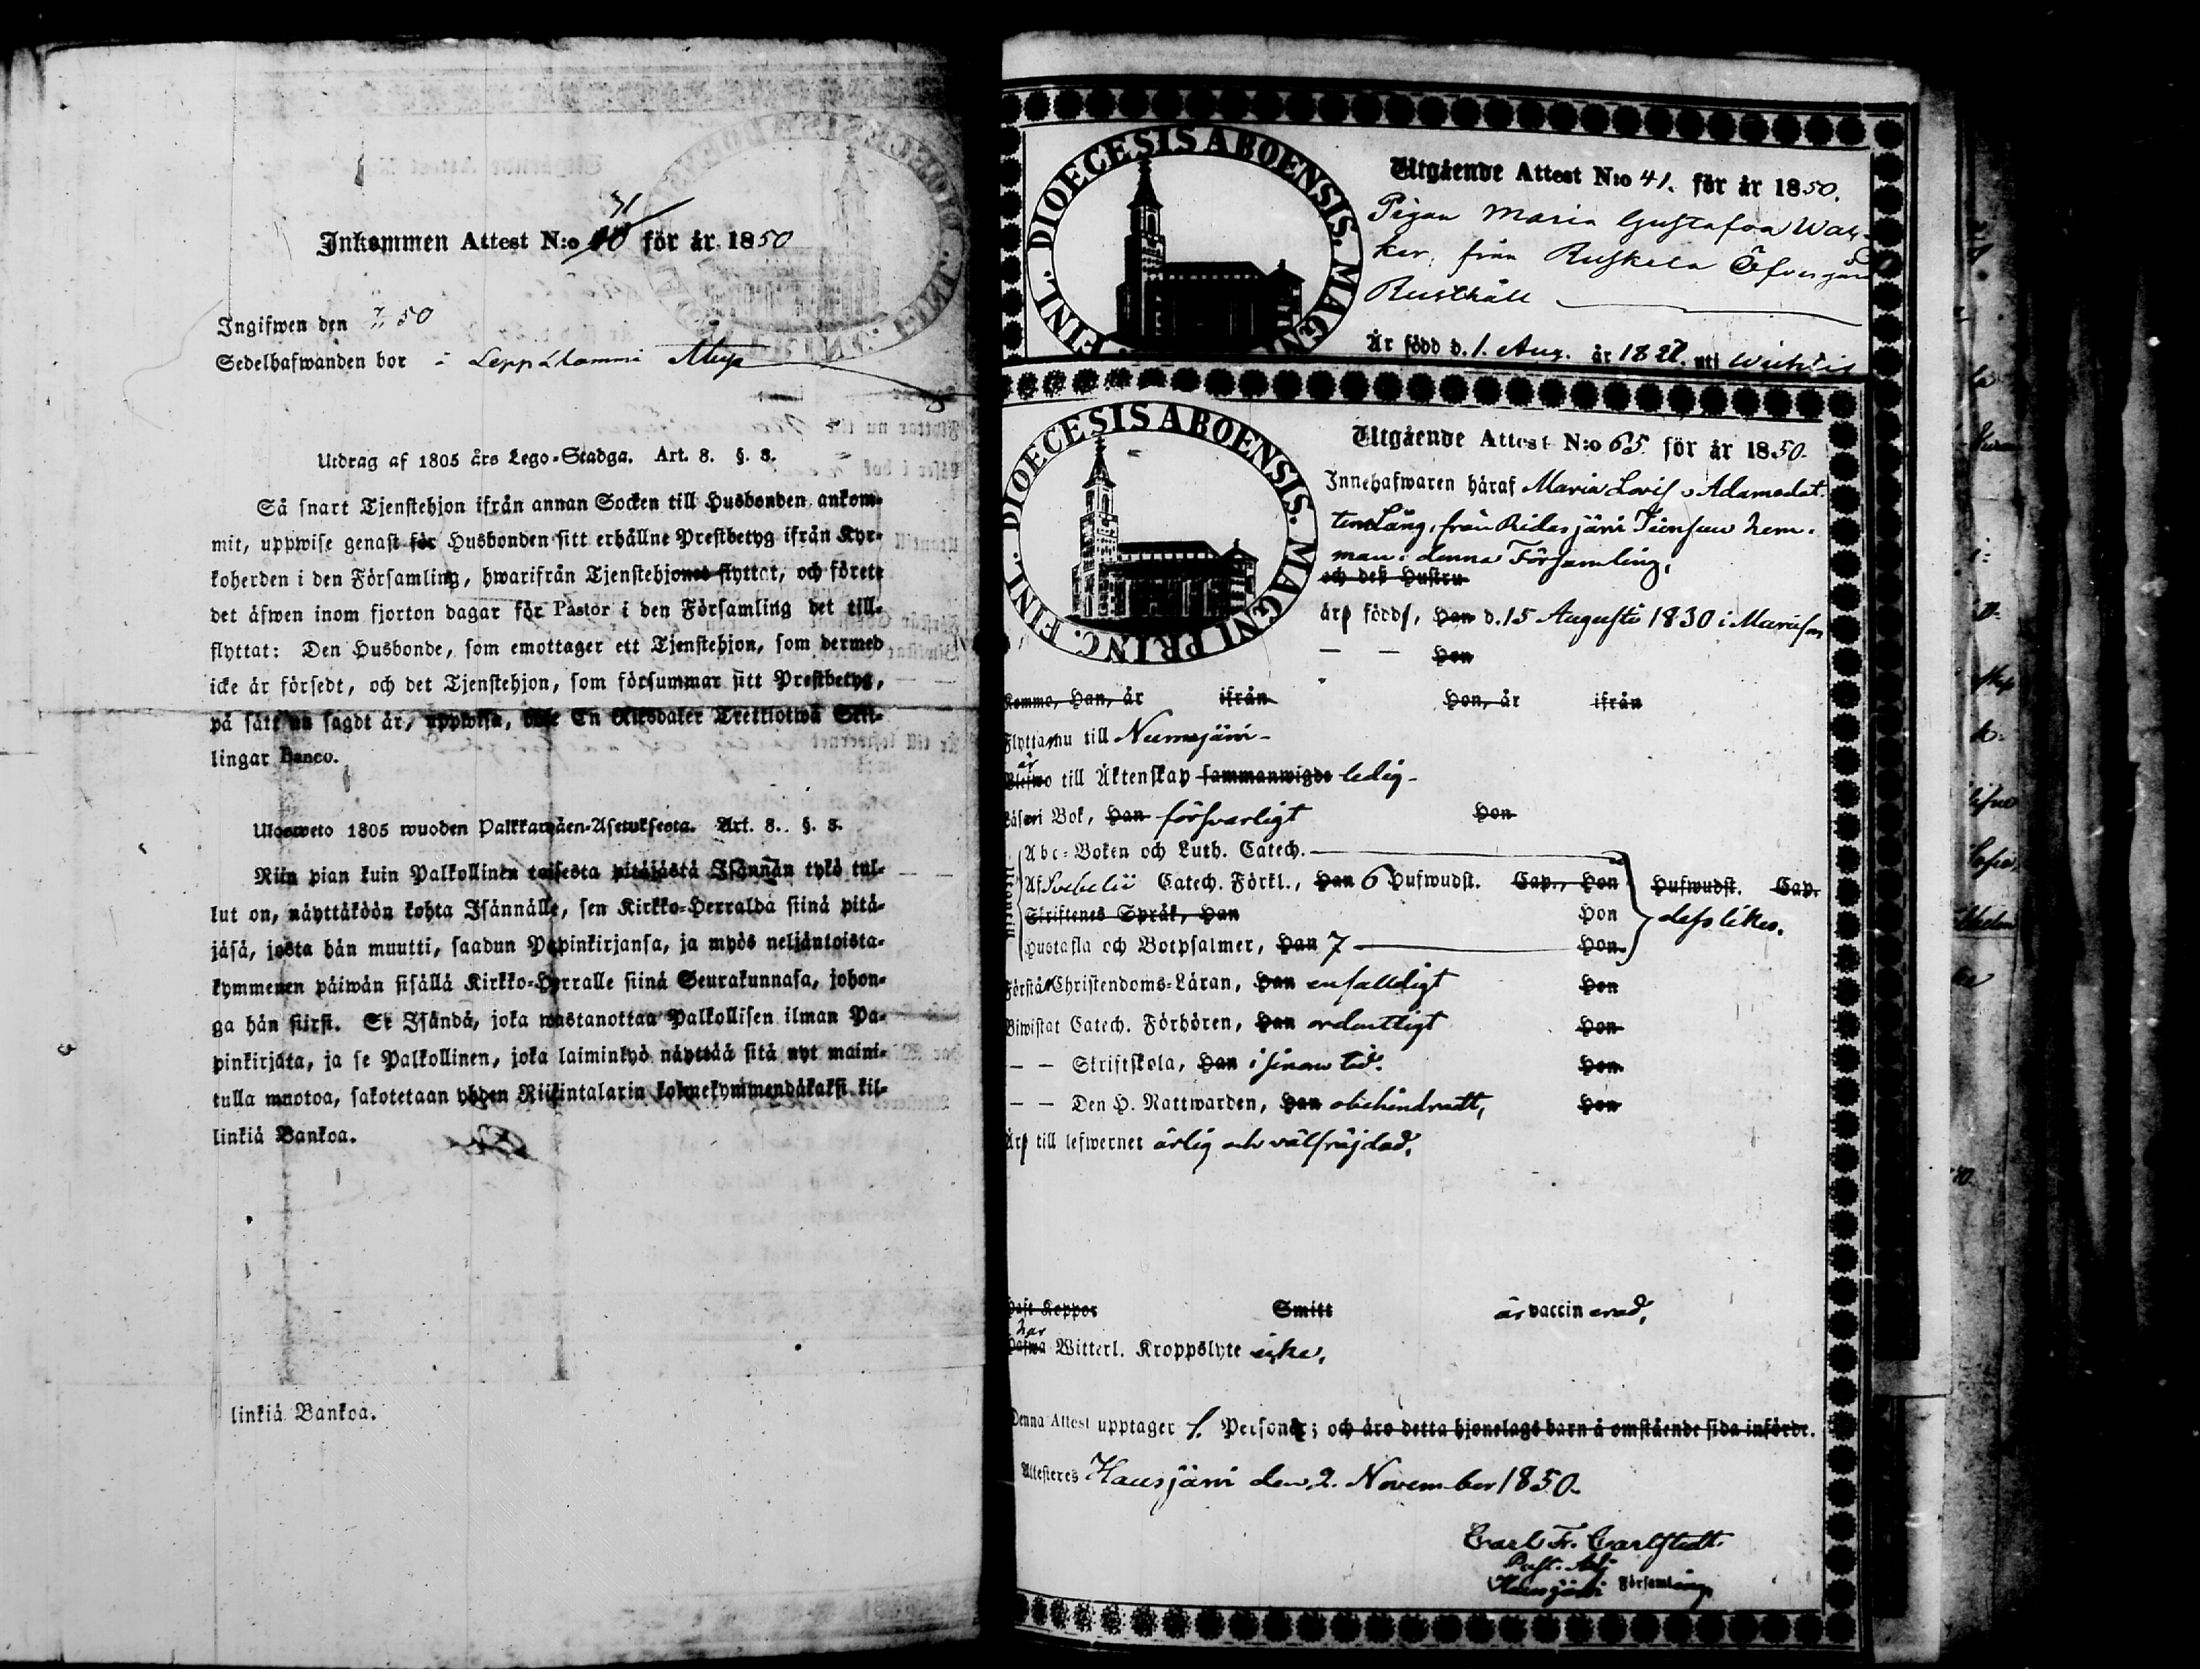 Inkommen Attest N:o 31 för år 1850
Ingifwen den 50
Sedelhafwanden bor i Leppäkammi
Utdrag af 1805 års Lego-Stadga. Art. 8. §. 8.
Så snart Tjenstehjon ifrån annan Socken till Husbonden ankom-
mit, uppwise genast för Husbonden sitt erhållne Prestbetyg ifrån Kyr-
koherden i den Församling, hwarifrån Tjenstehjonet flyttat, och förete
det äfwen inom fjorton dagar för Pastor i den Församling det till-
flyttat: Den Husbonde, som emottager ett Tjenstehjon, som dermed
icke är försedt, och det Tjenstehjon, som försummar sitt Prestbetyg,
på sätt nu sagdt är, uppwisa, böte En Riksdaler Trettiotwå Skil-
lingar Banco.
Ulosweto 1805 wuoden Palkkawäen-Asetuksesta. Art. 8. §. 8.
Niin pian kuin Palkollinen toisesta pitäjästä Isännän tykö tul-
lut on, näyttäköön kohta Isännälle, sen Kirkko-Herralda siinä pitä-
jäsä, josta hän muutti, saadun Papinkirjansa, ja myös neljäntoista-
kymmenen päiwän sisällä Kirkko-Herralle siinä Seurakunnasa, johon-
ga hän siirsi. Se Isändä, joka wastanottaa Palkollisen ilman Pa-
pinkirjata, ja se Palkollinen, joka laiminlyö näyttää sitä nyt maini-
tulla muotoa, sakotetaan yhden Riikintalarin kolmekymmendäkaksi kil-
linkiä Bankoa.
linkiä Bankoa.
FINL. DIOECESIS ABOENSIS. MAGNI
Utgående Attest N:o 41. för år 1850.
Pigan Maria Gustafva Wac-
ker, från Ruskela Öfvergård
Rusthåll
Är född d. 1. Aug. år 1827. uti
FINL. DIOECESIS ABOENSIS. MAGNI PRINC.
Utgående Attest N:o 65. för år 1850.
Innehafwaren häraf Maria Lovisa Adamsdot.
ter Lång, från Ridasjärvi Jünsuu hem-
man i denna Församling,
och dess Hustru
äro födds, Han d. 15 Augusti 1830 i
— — Hon
Komme, Han, är ifrån Hon, är ifrån
Flytta nu till Nurmijärvi -
är
Blefwo till Äktenskap sammanwigde ledig -
Läser i Bok, Han försvarligt Hon
Abc-Boken och Luth. Catech.
Af Svebelii Catech. Förkl., Han 6 Hufwudst. Cap., Hon Hufwudst. Cap.
Skriftenes Språk, Han Hon dess likes.
Hustafla och Botpsalmer, Han 7 Hon
Förstår Christendoms-Läran, Han enfaldigt Hon
Biwistat Catech. Förhören, Han ordentligt Hon
— — Skriftskola, Han i sinom tid. Hon
— — Den H. Nattwarden, Han obehindradt, Hon
Äro till lefwernet ärlig och välfräjdad.
Haft Koppor Smitt är vaccin erad.
har
Hafwa Witterl. Kroppslyte icke.
Denna Attest upptager 1. Personer; och äro detta hjonelags barn å omstående sida införde.
Attesteres Hausjärvi den 2. November 1850.
Carl Fr. Carlstedt.
Past. Adj
Hausjärvi Församling